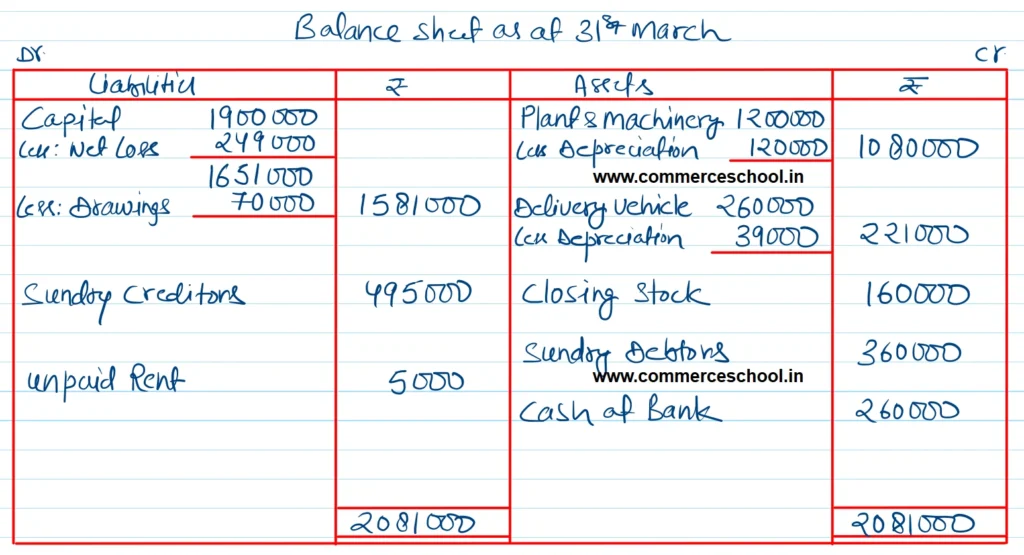 Balance sheet as at 31st March
Dr. Cr.
Liabilities ₹ Assets ₹
Capital 1900000 Plant & machinery 1200000
Less: Net Loss 249000 Less Depreciation 120000 1080000
1651000 www.commerceschool.in
Less: Drawings 70000 1581000 Delivery vehicle 260000
Less Depreciation 39000 221000
Sundry Creditors 495000 Closing Stock 160000
Sundry Debtors 360000
unpaid Rent 5000 www.commerceschool.in
Cash at Bank 260000
2081000 2081000